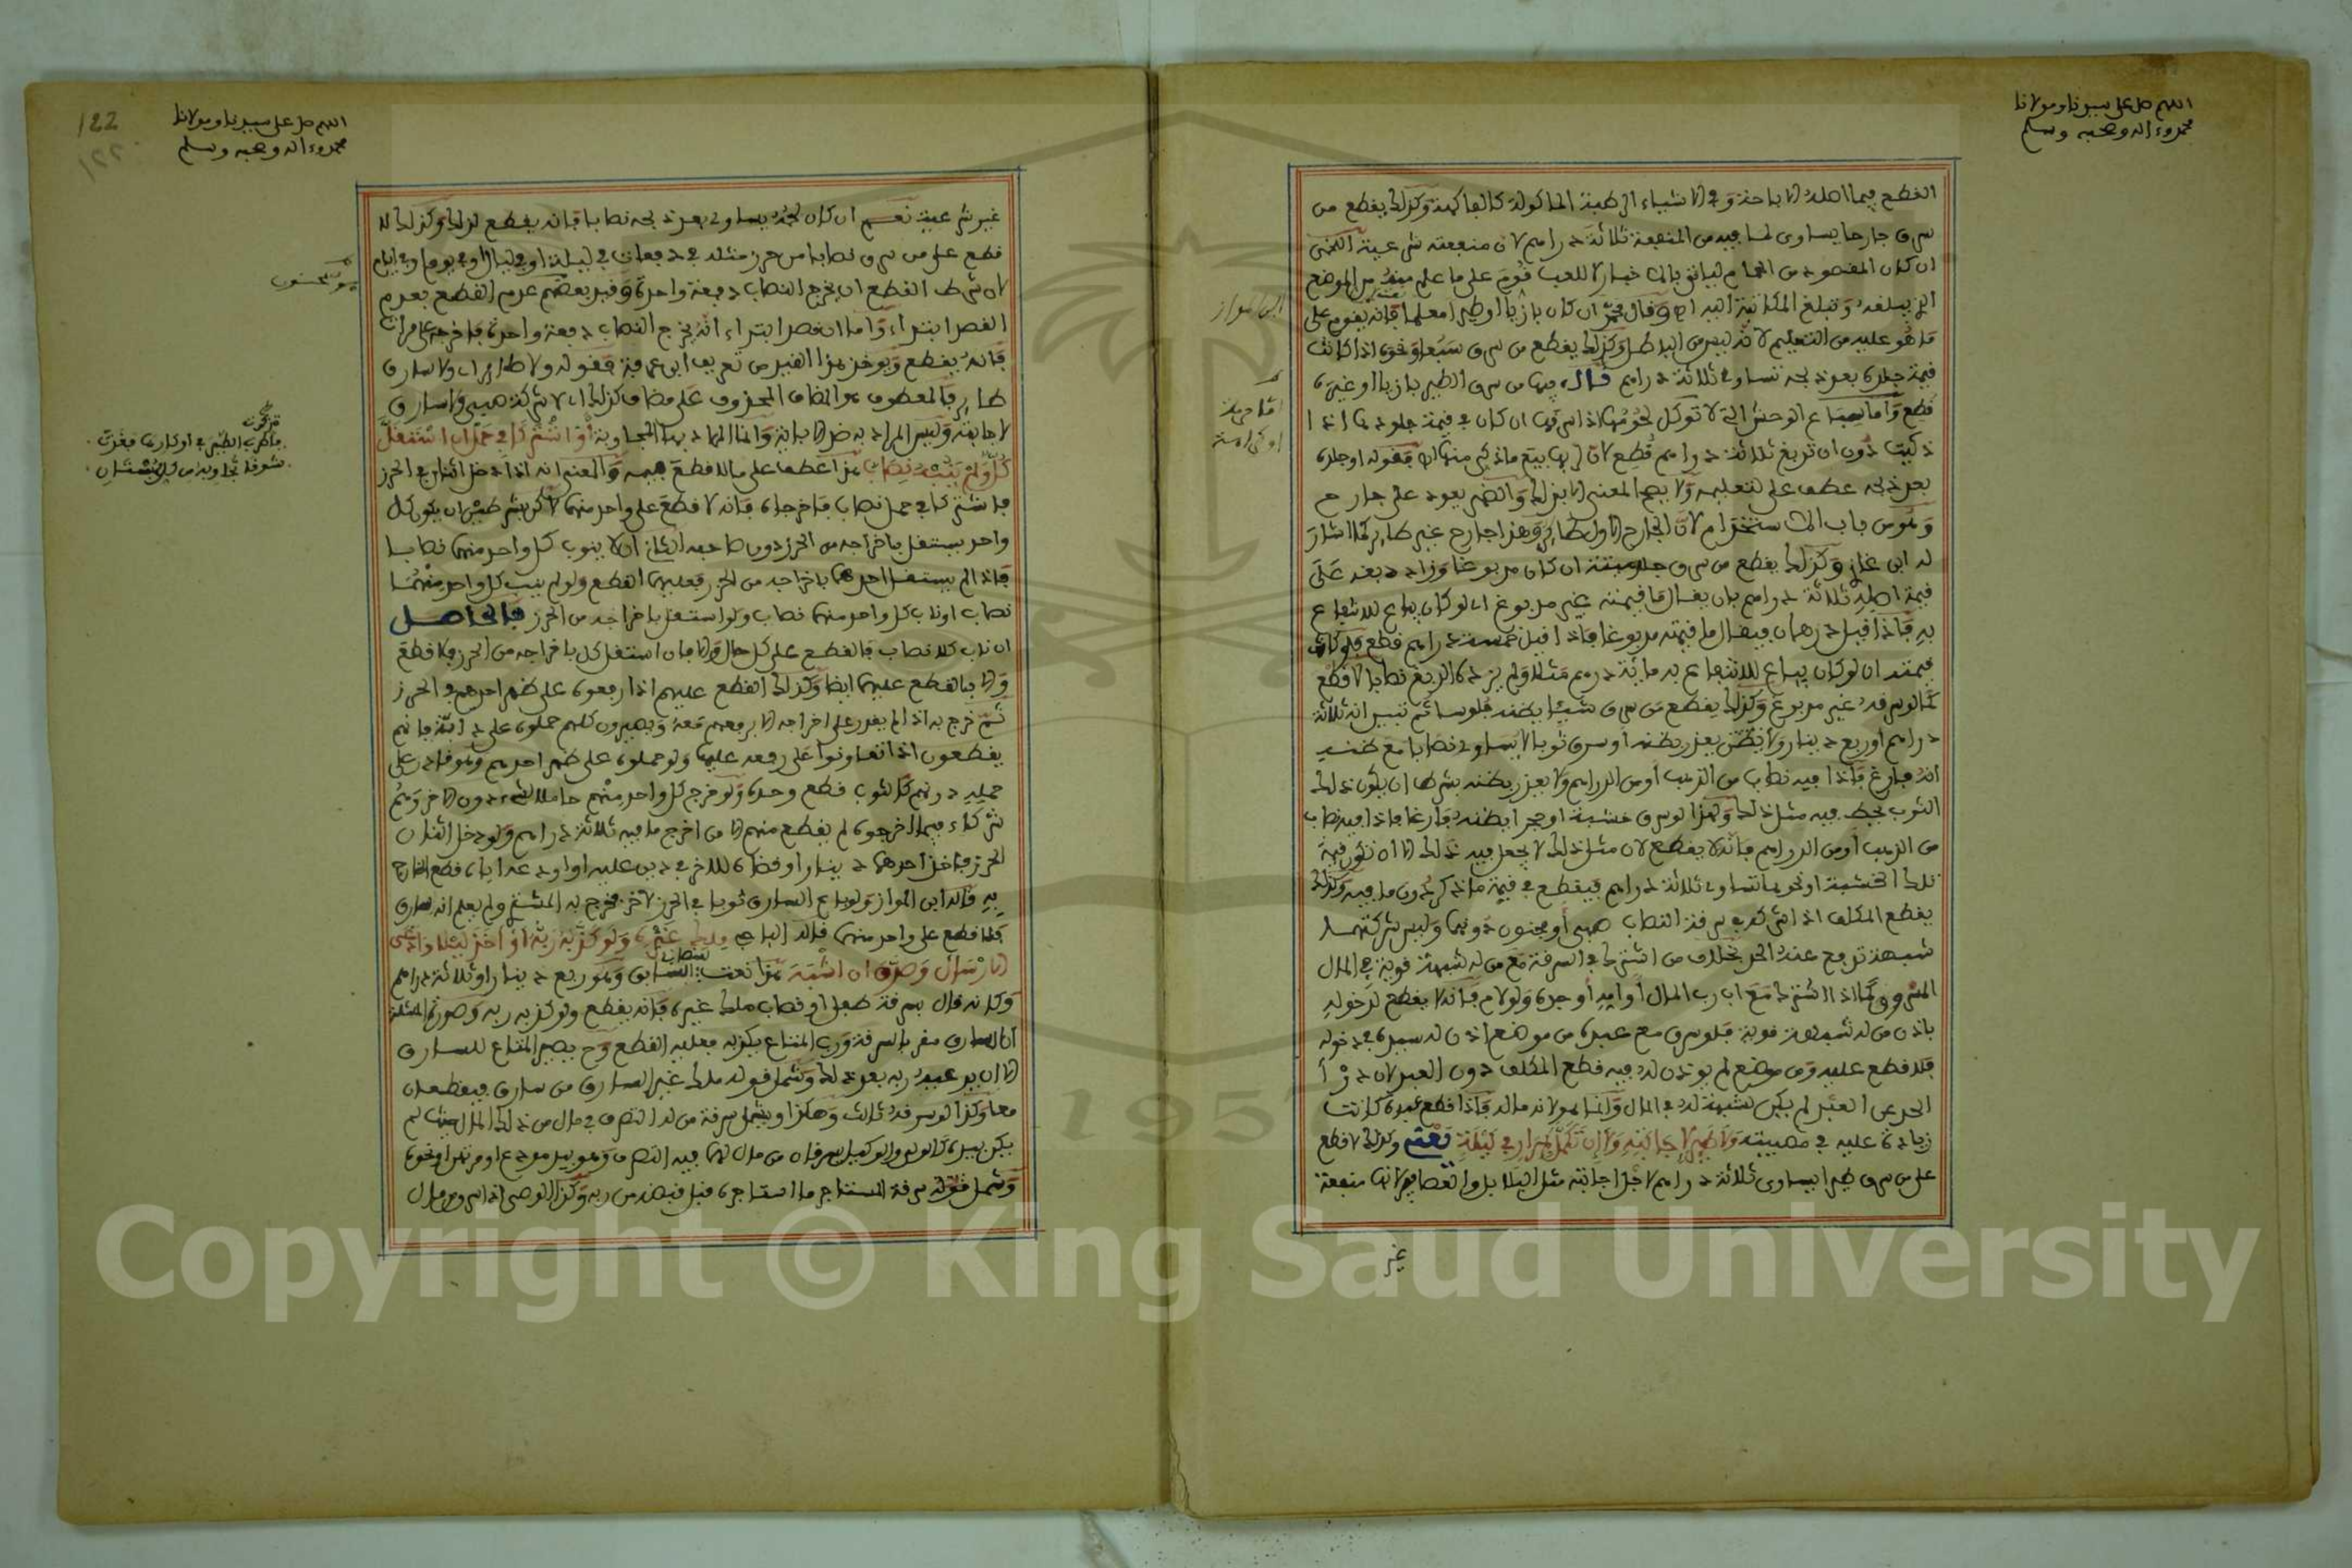 اللهم صل على سيدنا ومولانا
محمد وءاله وصحبه وسلم
القطع فيما اصله الاباحة وفي الاشياء الرطبة الماكولة كالفاكهة وكذلك يقطع من
سرق جارحا يساوى لما فيه من المنفعة ثلاثة دراهم لان منفعته شرعية
ان كان المقصود من الحمام لياتي بالاخبار لا للعب قوم على ما علم منه من الموضع
الذي يبلغه وتبلغ المكاتبة اليه اه وقال محمد ان كان بازيا او طيرا معلما فانه يقوم على
ما هو عليه من التعليم لانه ليس من الباطل وكذلك يقطع من سرق سبعا ونحوه اذا كانت
قيمة جلده بعد ذبحه تساوي ثلاثة دراهم قال فيها من سرق الطير بازيا او غيره
قطع واما سباع الوحش التي لا توكل لحومها اذا سرقها ان كان في قيمة جلودها اذا
ذكيت دون ان تدبغ ثلاثة دراهم قطع لان لربها بيع ما ذكي منها اه فقوله او جلده
بعد ذبحه عطف على لتعليمه ولا يصح المعنى الا بذلك والضمير يعود على جارح
وهو من باب الاستخدام لان الجارح الاول طائر وهذا جارح غير طائر كما اشار
له ابن غازي وكذلك يقطع من سرق جلد ميتة ان كان مدبوغا وزاد دبغه على
قيمة اصله ثلاثة دراهم بان يقال ما قيمته غير مدبوغ ان لو كان يباع للانتفاع
به فاذا قيل درهمان فيقال ما قيمته مدبوغا فاذا قيل خمسة دراهم قطع فلو كانت
قيمته ان لو كان يباع للانتفاع به مائة درهم مثلا ولم يزده الدبغ نصابا لا قطع
كما لو سرقه غير مدبوغ وكذلك يقطع من سرق شيئا يظنه فلوسا ثم تبين انه ثلاثة
دراهم او ربع دينار ولا يعذر بظنه او سرق ثوبا لا يساوي نصابا مع ظنه
انه فارغ فاذا فيه نصاب من الذهب او من الدراهم ولا يعذر بظنه بشرط ان يكون ذلك
الثوب يجعل فيه مثل ذلك ولهذا لو سرق خشبة او حجرا يظنه فارغا فاذا فيه نصاب
من الذهب او من الدراهم فانه لا يقطع لان مثل ذلك لا يجعل فيه ذلك الا ان تكون قيمة
تلك الخشبة او نحوها تساوي ثلاثة دراهم فيقطع في قيمة ما ذكر دون ما فيه وكذلك
يقطع المكلف اذا شركه في سرقة النصاب صبي او مجنون دونهما وليس شركتهما
شبهة تدرء عنه الحد بخلاف من اشترك في السرقة مع من له شبهة قوية في المال
المسروق كما اذا اشترك مع اب رب المال او امه او جده ولو لام فانه لا يقطع لدخوله
باذن من له شبهة قوية فلو سرق مع عبده من موضع اذن له سيده في دخوله
فلا قطع عليه ومن موضع لم يوذن له فيه قطع المكلف دون العبد لان درأ
الحد عن العبد لم يكن لشبهة له في المال وانما هو لانه ماله فاذا قطع عبده كانت
زيادة عليه في مصيبته ولا طير لاجابته ولا ان تكمل بمرار في ليلة نعم وكذلك لا قطع
على من سرق طيرا يساوى ثلاثة دراهم لاجل اجابته مثل البلابل والعصافير لانها منفعة
غير
ابن المواز
122
١٢٢
اللهم صل على سيدنا ومولانا
محمد وءاله وصحبه وسلم
غير شرعية نعم ان كان لحمه يساوي بعد ذبحه نصابا فانه يقطع لذلك وكذلك لا
قطع على من سرق نصابا من حرز مثله في دفعات في ليلة او في ليال او في يوم او في ايام
لان شرط القطع ان يخرج النصاب دفعة واحدة وقيد بعضهم عدم القطع بعدم
القصد ابتداء واما ان قصد ابتداء انه يخرج النصاب دفعة واحدة فاخرجه على مرات
فانه يقطع ويوخذ هذا القيد من تعريف ابن عرفة فقوله ولا طائر اى ولا سارق
طائر فالمعطوف هو المضاف المحذوف على مضاف كذلك اى لا شركة صبي ولا سارق
لاجابته وليس المراد به ضد الاباية وانما المراد به المجاوبة او اشتركا في حمل ان استقل
كل ولم ينبه نصاب هذا عطف على ما لا قطع فيه والمعنى انه اذا دخل اثنان في الحرز
فاشتركا في حمل نصاب فاخرجاه فانه لا قطع على واحد منهما لاكن بشرطين ان يكون كل
واحد يستقل باخراجه من الحرز دون صاحبه الثاني ان لا ينوب كل واحد منهما نصابا
فاذا لم يستقل احدهما باخراجه من الحرز فعليهما القطع ولو لم ينب كل واحد منهما
نصاب او ناب كل واحد منهما نصاب ولو استقل باخراجه من الحرز فالحاصل
ان ناب كلا نصاب فالقطع على كل حال والا فان استقل كل باخراجه من الحرز فلا قطع
والا فالقطع عليهما ايضا وكذلك القطع عليهم اذا رفعوه على ظهر احدهم في الحرز
ثم خرج به اذا لم يقدر على اخراجه الا برفعهم معه ويصيرون كلهم حملوه على دابة فانهم
يقطعون اذا تعاونوا على رفعه عليها ولو حملوه على ظهر احدهم وهو قادر على
حمله دونهم كالثوب قطع وحده ولو خرج كل واحد منهم حاملا لشيء دون الاخر وهم
شركاء فيما اخرجوه لم يقطع منهم الا من اخرج ما فيه ثلاثة دراهم ولو دخل اثنان
الحرز فاخذ احدهما دينارا وقضاه للاخر في دين عليه او اودعه اياه قطع الخارج
به قاله ابن المواز ولو باع السارق ثوبا في الحرز لاخر فخرج به المشتري ولم يعلم انه سارق
فلا قطع على واحد منهما قاله الباجي ملك غير ولو كذبه ربه او اخذ ليلا وادعى
الارسال وصدق ان اشبه هذا نعت لنصاب السابق وهو ربع دينار او ثلاثة دراهم
وكانه قال بسرقة طفل او نصاب ملك غيره فانه يقطع ولو كذبه ربه وصورة المسئلة
ان السارق مقر بالسرقة ورب المتاع يكذبه فعليه القطع وح يصير المتاع للسارق
الا ان يدعيه ربه بعد ذلك وشمل قوله ملك غير السارق من سارق فيقطعان
معا وكذا لو سرقه ثالث وهكذا ويشمل سرقة من له التصرف في مال من ذلك المال حيث لم
يكن بيده كالولي والوكيل يسرقان من مال لهما فيه التصرف وهو بيد مودع او مرتهن او نحوه
وشمل قوله سرقة المستاجر ما استاجره قبل قبضه من ربه وكذا الوصي اذا سرق من مال